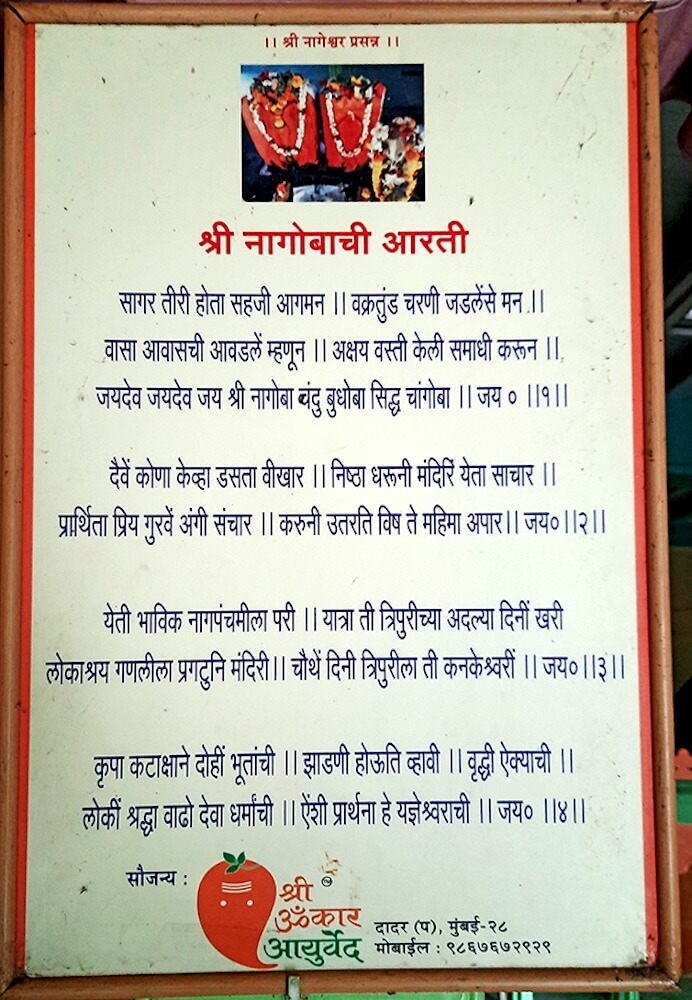 ।। श्री नागेश्वर प्रसन्न ।।
श्री नागोबाची आरती
सागर तीरी होता सहजी आगमन ।। वक्रतुंड चरणी जडलेंसे मन ।।
वासा आवासची आवडलें म्हणून ।। अक्षय वस्ती केली समाधी करून ।।
जयदेव जयदेव जय श्री नागोबा बंदु बुधोबा सिद्ध चांगोबा ।। जय ० ।।१।।
दैवें कोणा केव्हा डसता वीखार ।। निष्ठा धरूनी मंदिरिं येता साचार ।।
प्रार्थिता प्रिय गुरवें अंगी संचार ।। करुनी उतरति विष ते महिमा अपार।। जय०।।२।।
येती भाविक नागपंचमीला परी ।। यात्रा ती त्रिपुरीच्या अदल्या दिनीं खरी
लोकाश्रय गणलीला प्रगटुनि मंदिरी।। चौथें दिनी त्रिपुरीला ती कनकेश्वरीं ।। जय०।।३।।
कृपा कटाक्षाने दोहीं भूतांची ।। झाडणी होऊति व्हावी ।। वृद्धी ऐक्याची ।।
लोकीं श्रद्धा वाढो देवा धर्मांची ।। ऐंशी प्रार्थना हे यज्ञेश्वराची ।। जय० ।।४।।
सौजन्य :
श्री
ॐकार
आयुर्वेद
दादर (प), मुंबई-२८
मोबाईल : ९८६७६७२९२९